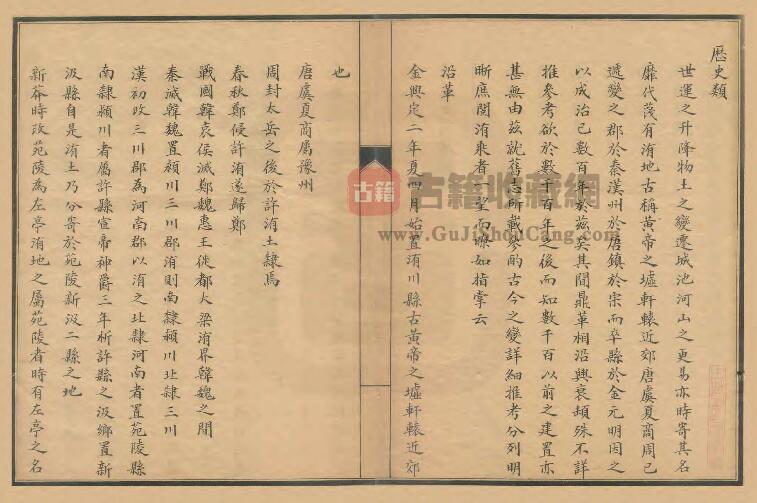 歷史類
世運之升降物土之變遷城池河山之更易亦時寄其名
靡代蔑有洧地古稱黃帝之墟軒轅近郊唐虞夏商周已
遞變之郡於秦漢州於唐鎮於宋而卒縣於金元明因之
以成治已數百年於茲矣其間鼎革相沿興衰頓殊不詳
推參考欲於數千百年之後而知數千百以前之建置亦
甚無由茲就舊志所載參的古今之變詳細推考分列明
晰庶閱洧乘者一望而瞭如指掌云
沿革
金興定二年夏四月始置洧川縣古黃帝之墟軒轅近郊
也
唐虞夏商屬豫州
周封太岳之後於許洧土隸焉
春秋鄭侵許洧遂歸鄭
戰國韓哀侯滅鄭魏惠王徙都大梁洧界韓魏之間
秦滅韓魏置潁川三川郡洧則南隸潁川北隸三川
漢初改三川郡為河南郡以洧之北隸河南者置苑陵縣
南隸潁川者屬許縣宣帝神爵三年析許縣之汲鄉置新
汲縣自是洧土乃分寄於苑陵新汲二縣之地
新莽時改苑陵為左亭洧地之屬苑陵者時有左亭之名
古籍
古籍收藏網
www.GuJiShouCang.com